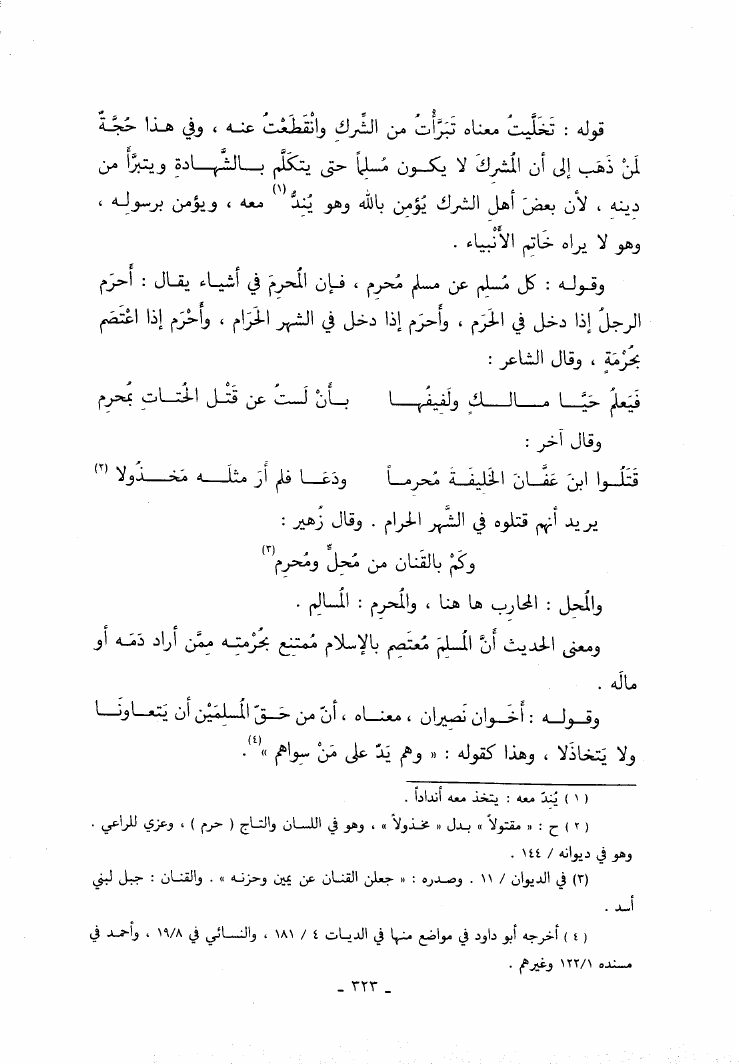 قوله : تَخَلَّيتُ معناه تَبَرَّأْتُ من الشِّركِ وانْقَطَعْتُ عنـه ، وفي هـذا حُجَّةٌ
لمَنْ ذَهَب إلى أن المُشركَ لا يكـون مُسلماً حتى يتكلَّم بـالشَّهـادةِ ويتبرَّأ من
دينِه ، لأن بعضَ أهل الشرك يُؤمن بالله وهو يُنِدُّ(١) معه ، ويؤمن برسوله ،
وهو لا يراه خَاتِم الأنْبياء .
وقـولـه : كل مُسلمٍ عن مسلمٍ مُحرم ، فـإن المُحرمَ في أشيـاء يقـال : أحرَم
الرجلُ إذا دخل في الحَرَم ، وأحرَم إذا دخل في الشهر الحَرَام ، وأَحْرَم إذا اعْتَصَم
بحُرْمَةٍ ، وقال الشاعر :
فَيَعلمُ حَيَّـا مـالـكٍ ولَفيفُهـا    بـأنْ لَستُ عن قَتْـل الحُتـاتِ بمُحرمِ
وقال آخر :
قَتَلُـوا ابنَ عَفَّـانَ الخَليفَـةَ مُحرِمـاً    ودَعَـا فلم أرَ مثلَـه مَخـذُولا(٢)
يريد أنهم قتلوه في الشَّهر الحرام . وقال زُهير :
وكَمْ بالقَنان من مُحِلٍّ ومُحرمِ(٣)
والمُحل : المحارب ها هنا ، والمُحرم : المُسالِم .
ومعنى الحديث أنَّ المُسلمَ مُعتَصِم بالإسلام مُمتنع بحُرْمتـه ممَّن أراد دَمَـه أو
مالَه .
وقـولـه : أخَـوان نَصيران ، معنـاه ، أنّ من حَـقّ المُسلِمَيْن أن يَتَعـاونَـا
ولا يَتَخاذَلا ، وهذا كقوله : « وهم يَدٌ على مَنْ سِواهم »(٤).
(١) يُندّ معه : يتخذ معه أنداداً .
(٢) ح : « مقتولاً » بدل « مخذولاً » ، وهو في اللسان والتاج ( حرم ) ، وعزي للراعي .
وهو في ديوانه / ١٤٤ .
(٣) في الديوان / ١١ . وصدره : « جعلن القنان عن يمين وحزنه » . والقنـان : جبل لبني
أسد .
(٤) أخرجه أبو داود في مواضع منها في الديـات ٤ / ١٨١ ، والنسـائي في ١٩/٨ ، وأحمـد في
مسنده ١٢٢/١ وغيرهم .
ـ ٣٢٣ ـ